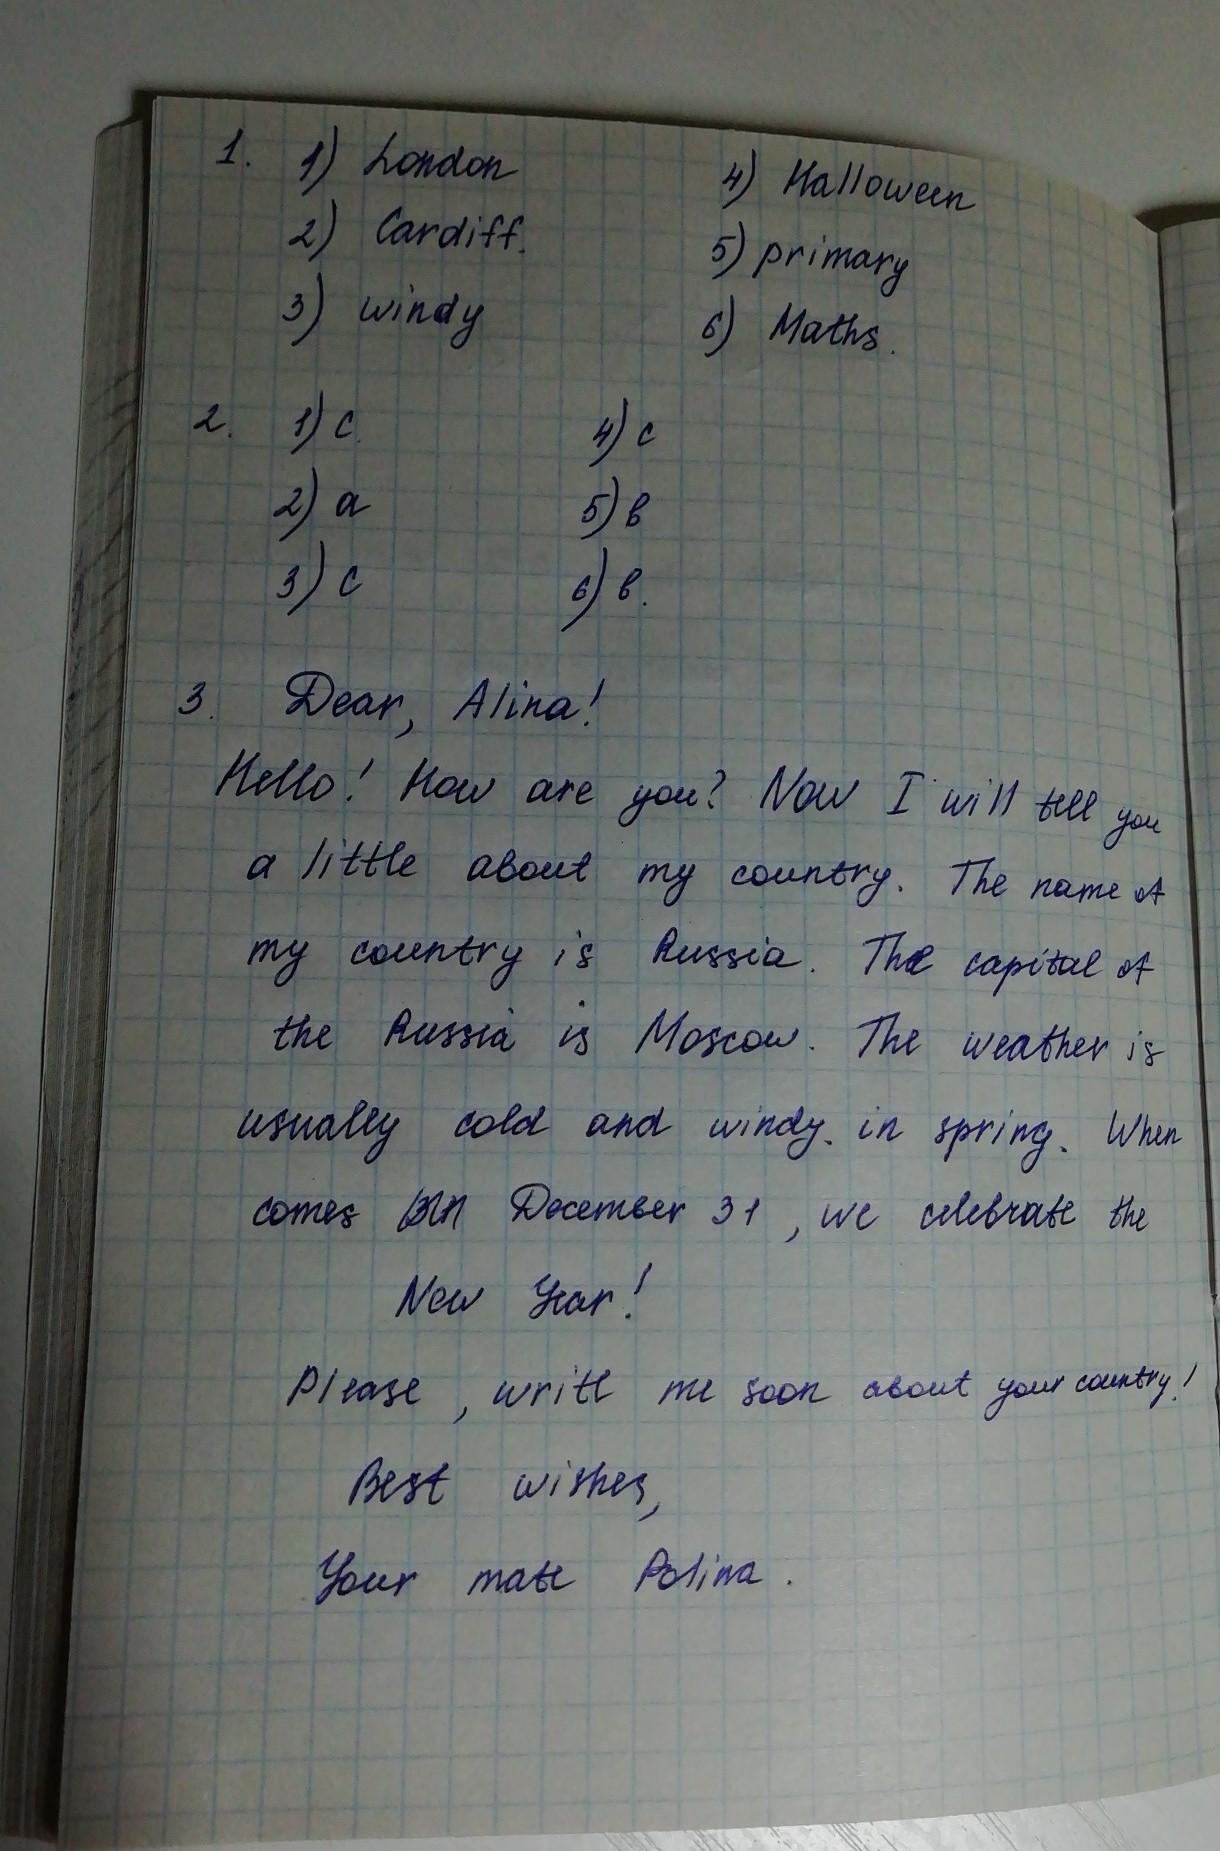 1. 1) London 4) Halloween
2) Cardiff. 5) primary
3) windy 6) Maths.
2. 1) c. 4) c
2) a 5) b
3) c 6) b.
3. Dear, Alina!
Hello! How are you? Now I will tell you
a little about my country. The name of
my country is Russia. The capital of
the Russia is Moscow. The weather is
usually cold and windy. in spring. When
comes December 31, we celebrate the
New Year!
Please, write me soon about your country!
Best wishes,
Your mate Polina.